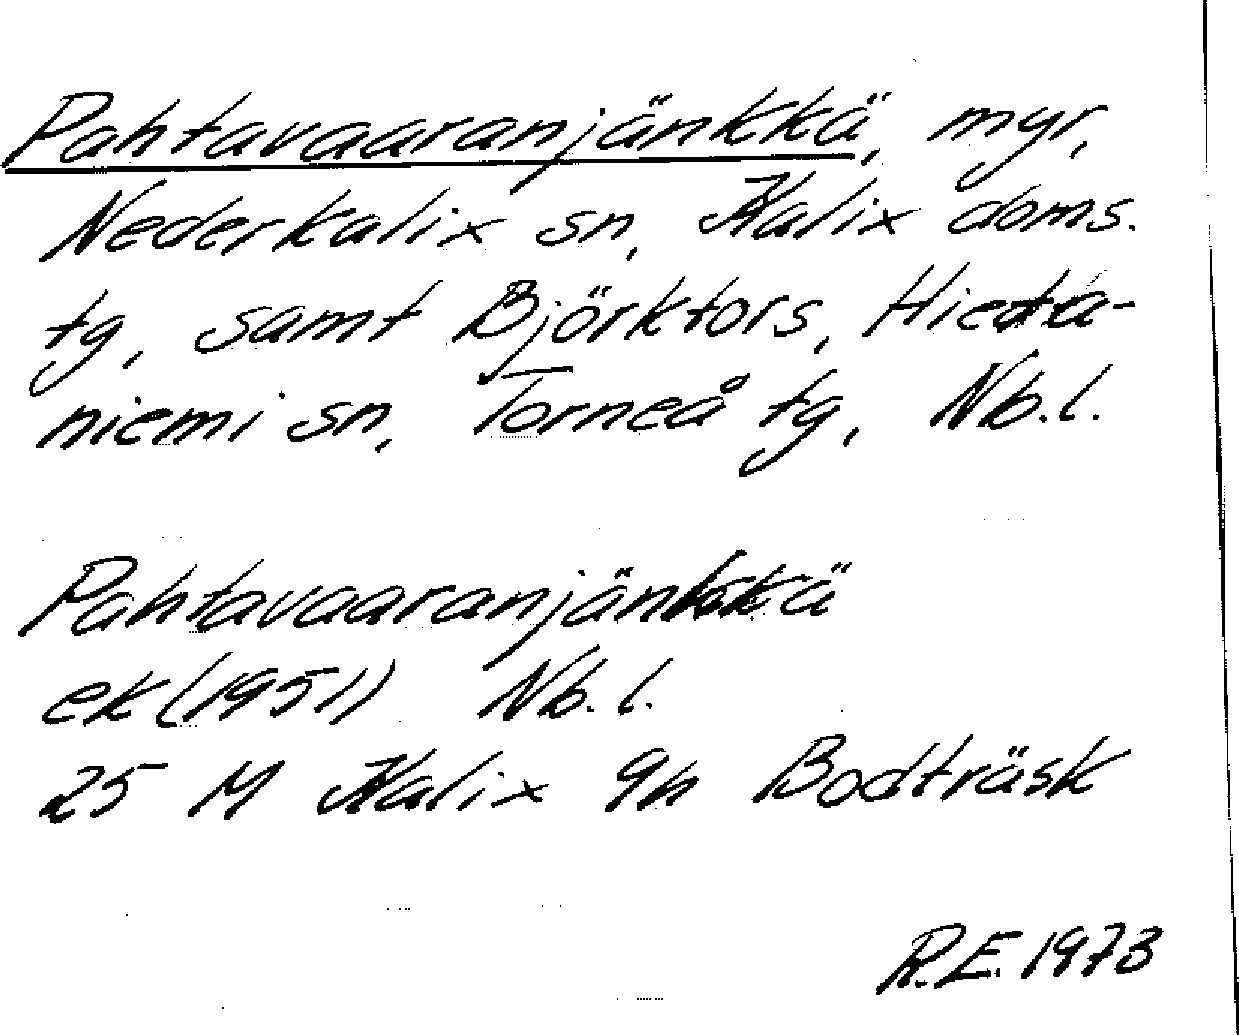 Pahtavaaranjänkkä, myr,
Nederkalix sn, Kalix doms.
tg, samt Björkfors, Hieta-
niemi sn, Torneå tg, Nb.l.
Pahtavaaranjänkkä
ek (1951) Nb.l.
25 M Kalix 9h Bodträsk
R.E. 1973